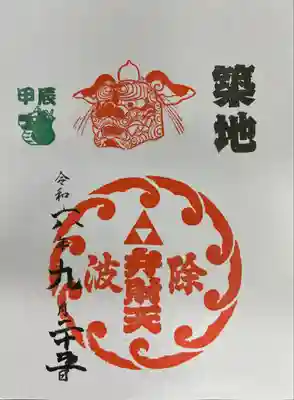 築地
甲辰
波除
弁財天
令和六年九月二十五日